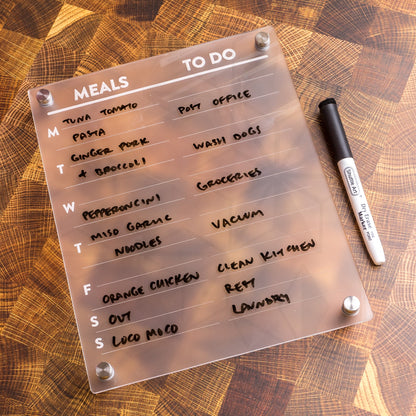 MEALS TO DO
M TUNA TOMATO POST OFFICE
PASTA
T GINGER PORK WASH DOGS
+ BROCCOLI
W PEPPERONCINI GROCERIES
T MISO GARLIC VACUUM
NOODLES
F ORANGE CHICKEN CLEAN KITCHEN
S OUT REST
S LOCO MOCO LAUNDRY
Dry Erase
Marker